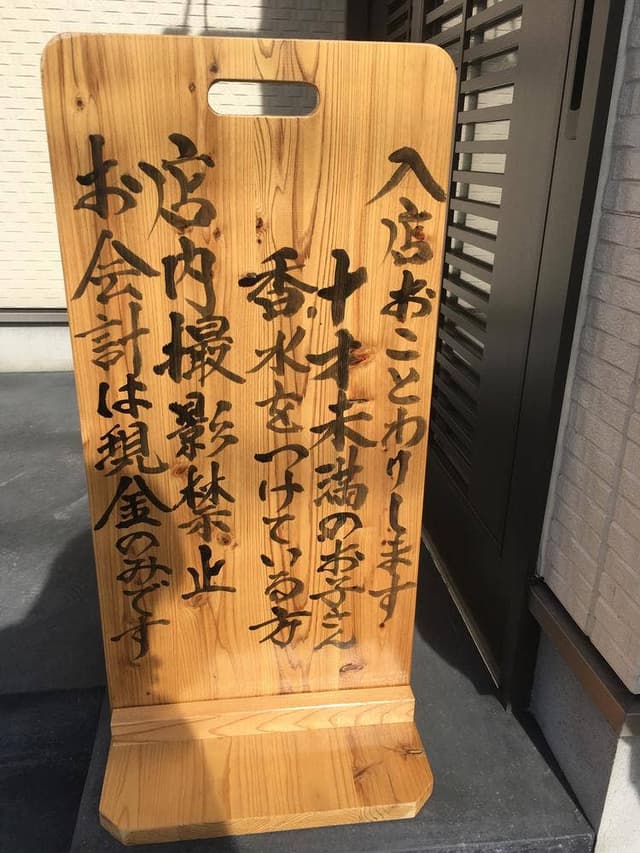 入店おことわりします
十才未満のお子さん
香水をつけている方
店内撮影禁止
お会計は現金のみです